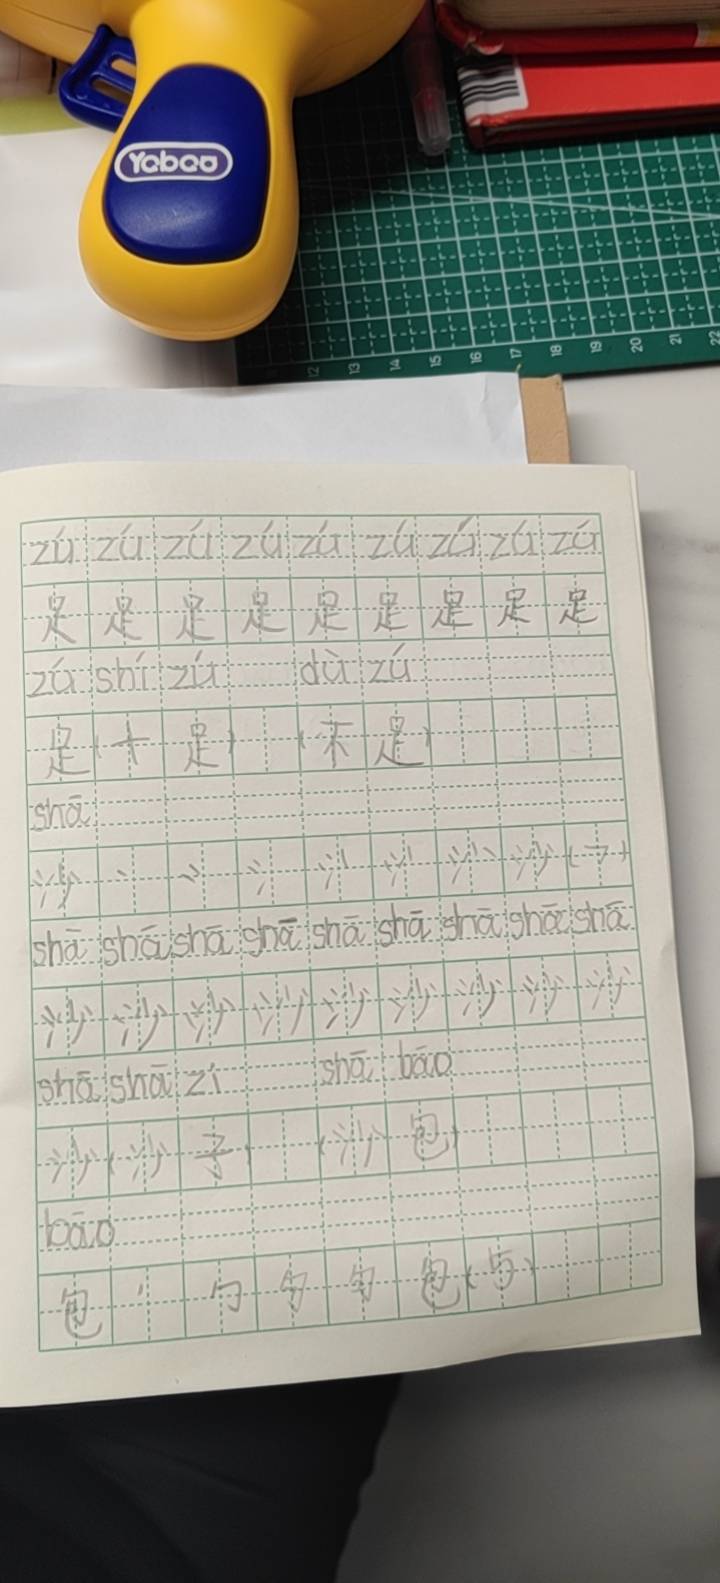 Yabao
12 13 14 15 16 17 18 19 20 21 22
zú zú zú zú zú zú zú zú zú
足 足 足 足 足 足 足 足 足
zú shí zú dù zú
足（十足）（不足）
shā
沙 沙（7）
shā shā shā shā shā shā shā shā shā
沙 沙 沙 沙 沙 沙 沙 沙 沙
shā shā zi shā bāo
沙（沙子）（沙包）
bāo
包 丿 勹 勺 句 包（5）